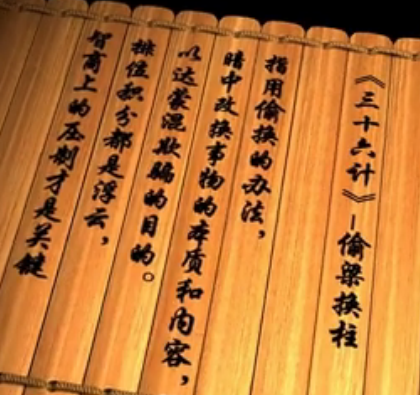 《三十六计》—偷梁换柱
指用偷换的办法，
暗中改换事物的本质和内容，
以达蒙混欺骗的目的。
排位积分都是浮云，
智商上的压制才是关键